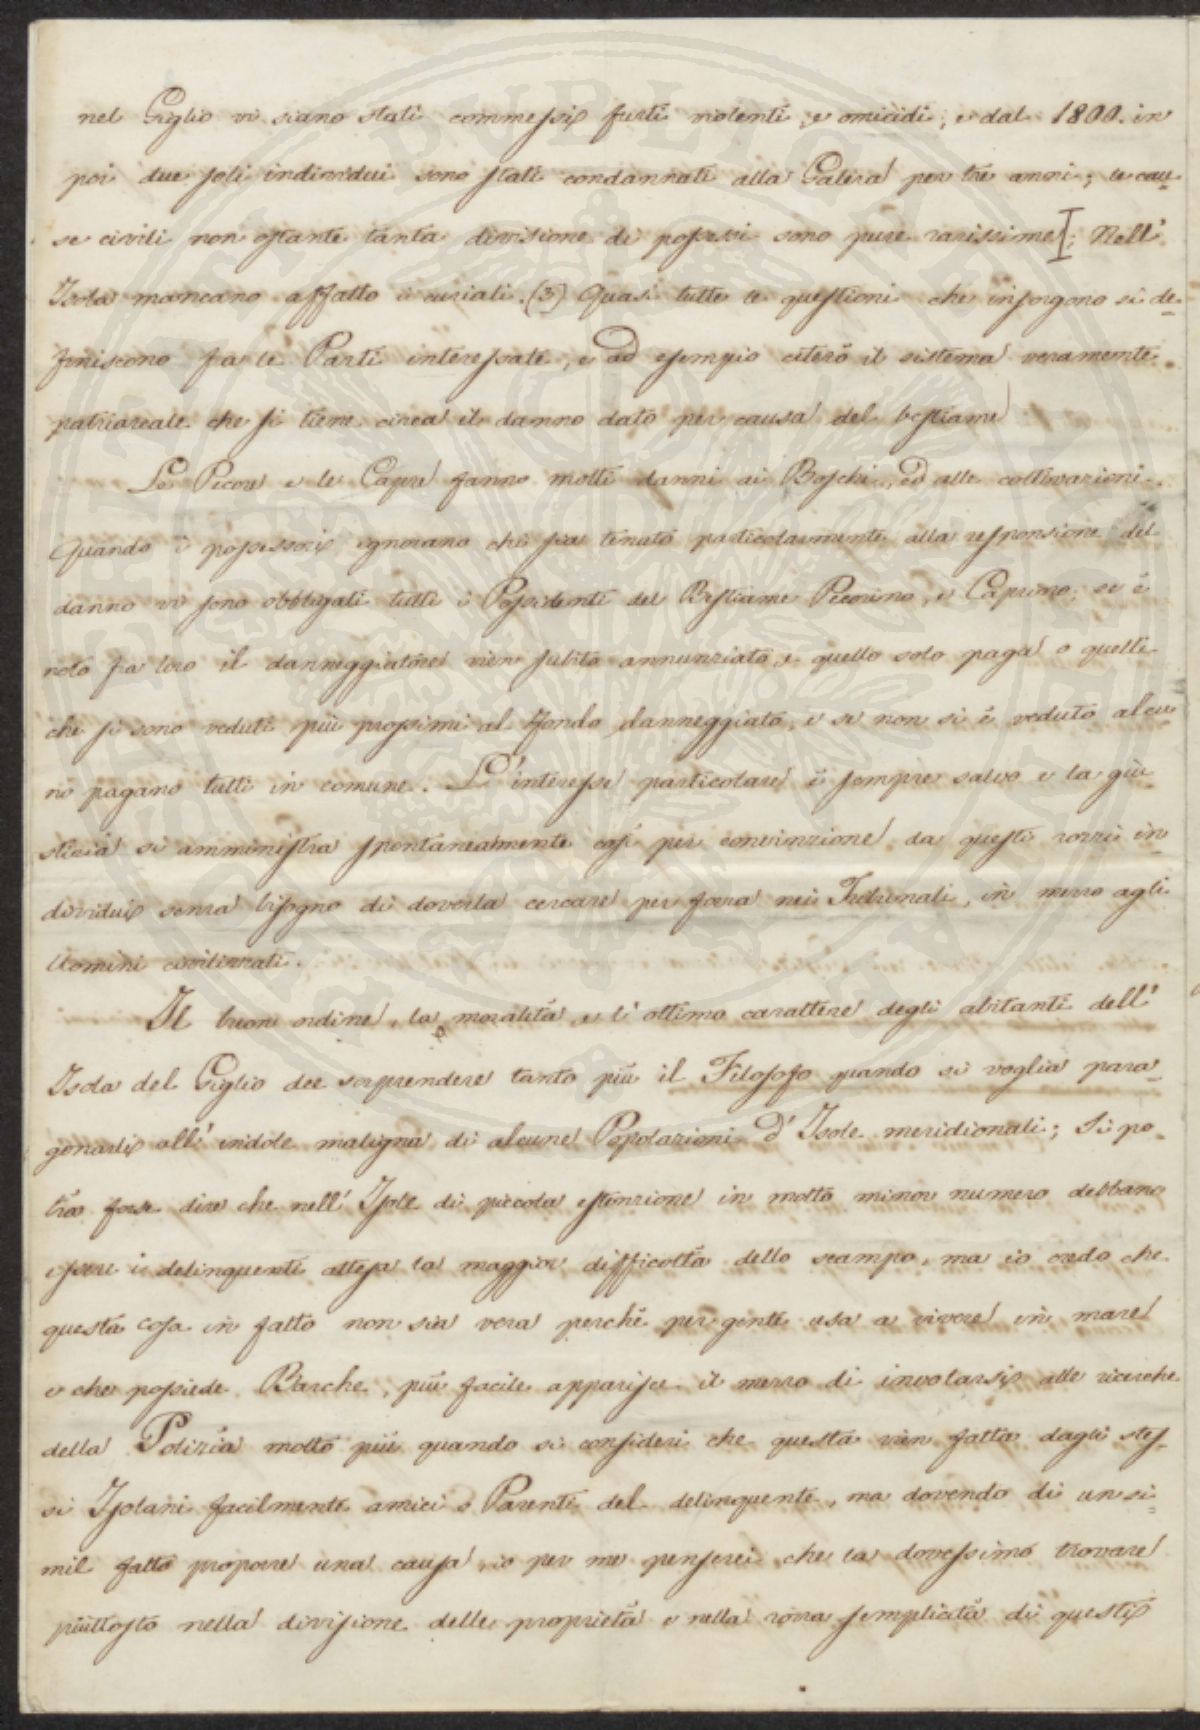 nel Giglio vi siano stati commessi furti violenti, e omicidi; e dal 1800. in
poi due soli individui sono stati condannati alla Galera per tre anni; le cau-
se civili non ostante tanta divisione di possessi sono pure rarissime; Nell'
Isola mancano affatto i curiali. (3) Quasi tutte le questioni che insorgono si de-
finiscono fra le Parti interessate, e ad esempio citerò il sistema veramente
patriarcale che si tiene circa il danno dato per causa del bestiame
Le Pecore e le Capre fanno molti danni ai Boschi, ed alle coltivazioni.
Quando i possessori ignorano chi sia tenuto particolarmente alla responsione del
danno vi sono obbligati tutti i Possidenti del Bestiame Pecorino, e Caprino; se è
noto fra loro il danneggiatore vien subito annunziato, e quello solo paga o quelli
che si sono veduti più prossimi al fondo danneggiato, e se non si è veduto alcu
no pagano tutti in comune. L'interesse particolare è sempre salvo e la giu-
stizia si amministra spontaneamente così per convinzione da questi rozzi in-
dividui senza bisogno di doverla cercare per forza nei Tribunali, in mezzo agli
Uomini civilizzati.
Il buon ordine, la moralità, e l'ottimo carattere degli abitanti dell'
Isola del Giglio dee sorprendere tanto più il Filosofo quando si voglia para-
gonarli all'indole maligna di alcune Popolazioni d'Isole meridionali; Si po-
trà forse dire che nell'Isole di piccola estenzione in molto minor numero debbano
essere i delinquenti attesa la maggior difficoltà dello scampo, ma io credo che
questa cosa in fatto non sia vera perchè per gente usa a vivere in mare
e che possiede Barche, più facile apparisce il mezzo di involarsi alle ricerche
della Polizia molto più quando si consideri che questa vien fatta dagli stes-
si Isolani facilmente amici o Parenti del delinquente, ma dovendo di un si-
mil fatto proporre una causa, io per me penserei che la dovessimo trovare
piuttosto nella divisione delle proprietà e nella rozza semplicità di questi